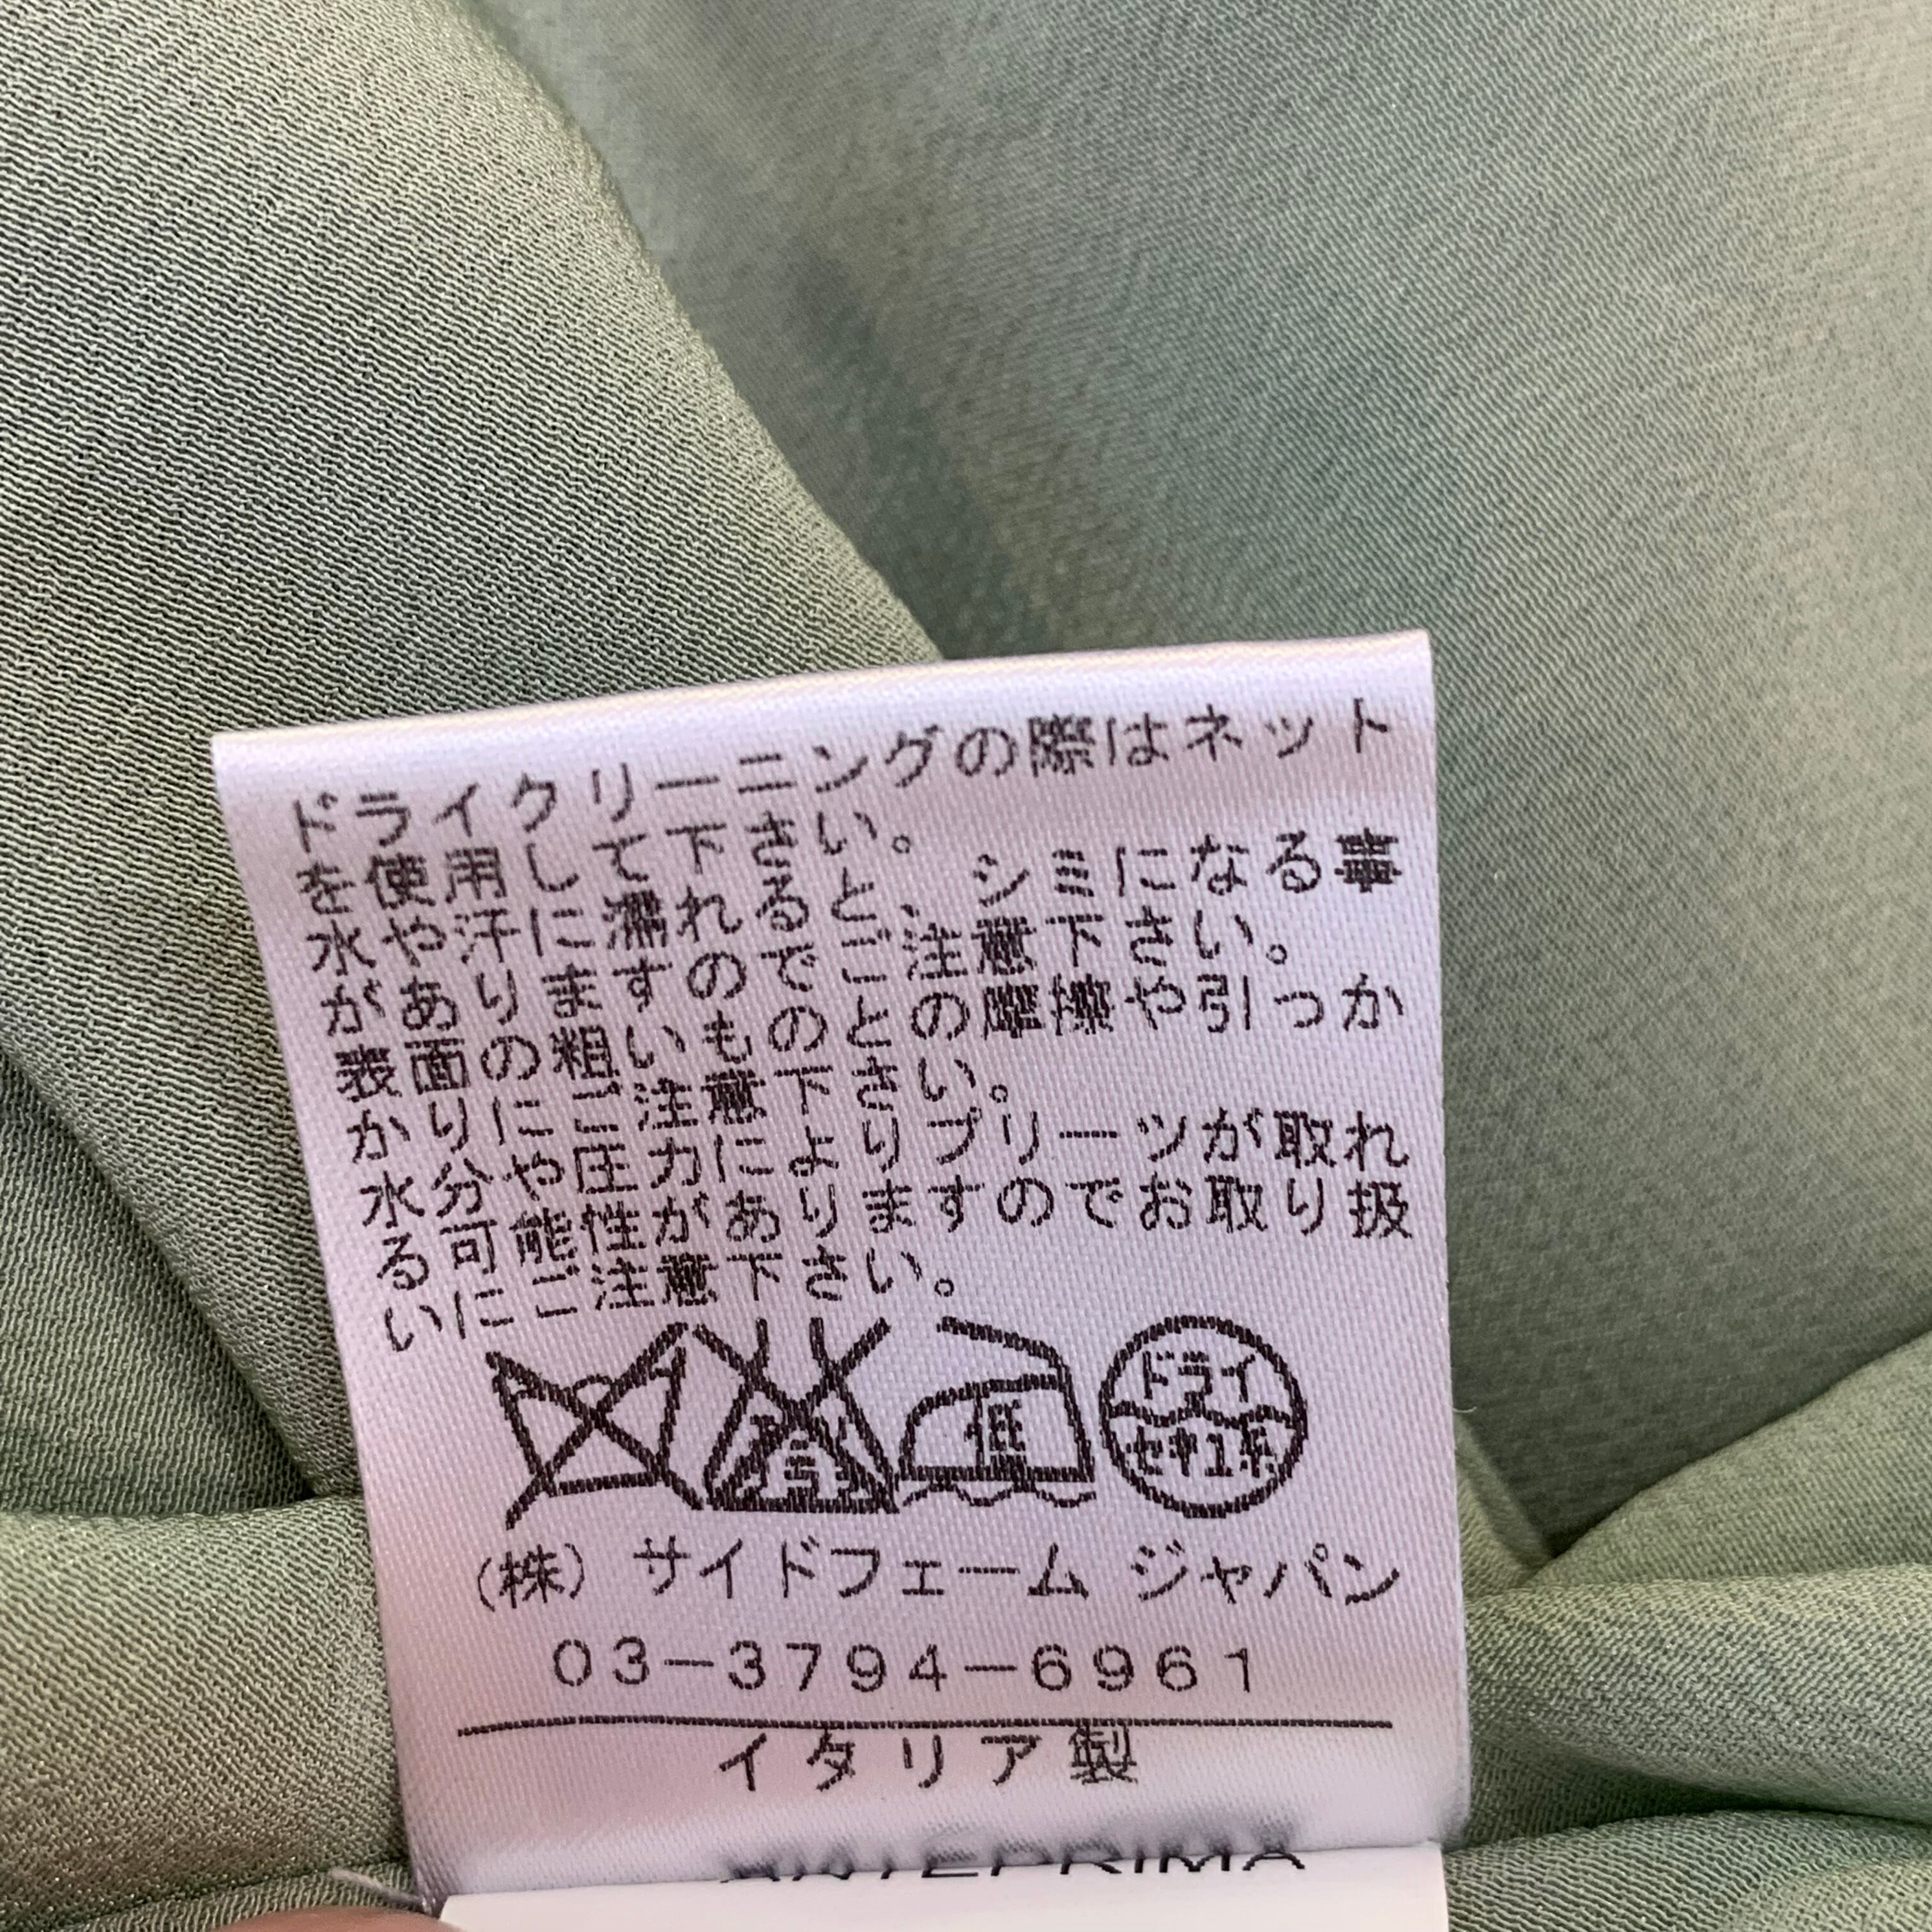 ドライクリーニングの際はネット
を使用して下さい。
水や汗に濡れると、シミになる事
がありますのでご注意下さい。
表面の粗いものとの摩擦や引っか
かりにご注意下さい。
水分や圧力によりプリーツが取れ
る可能性がありますのでお取り扱
いにご注意下さい。
低
ドライ
セキユ系
(株) サイドフェーム ジャパン
03-3794-6961
イタリア製
ANTEPRIMA